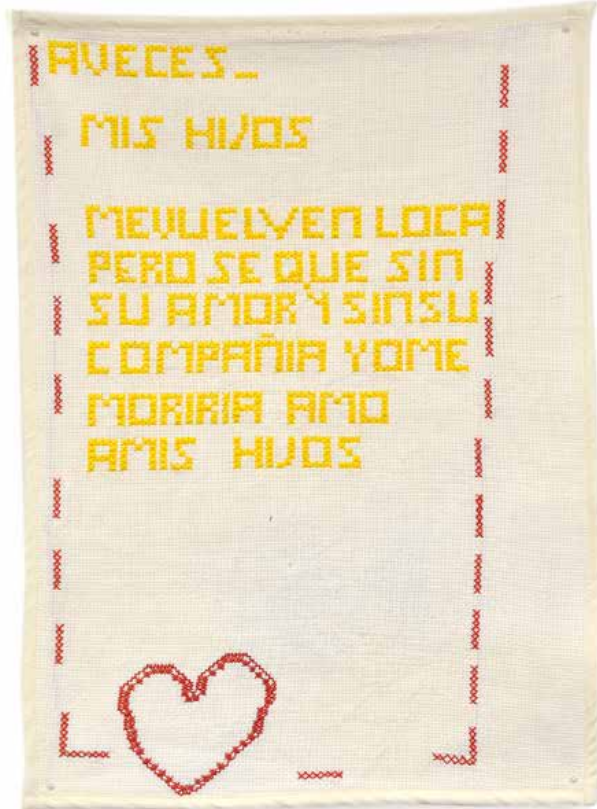 AVECES_
MIS HIJOS
MEVUELVEN LOCA
PERO SE QUE SIN
SU AMOR Y SINSU
COMPAÑIA YOME
MORIRIA AMO
AMIS HIJOS